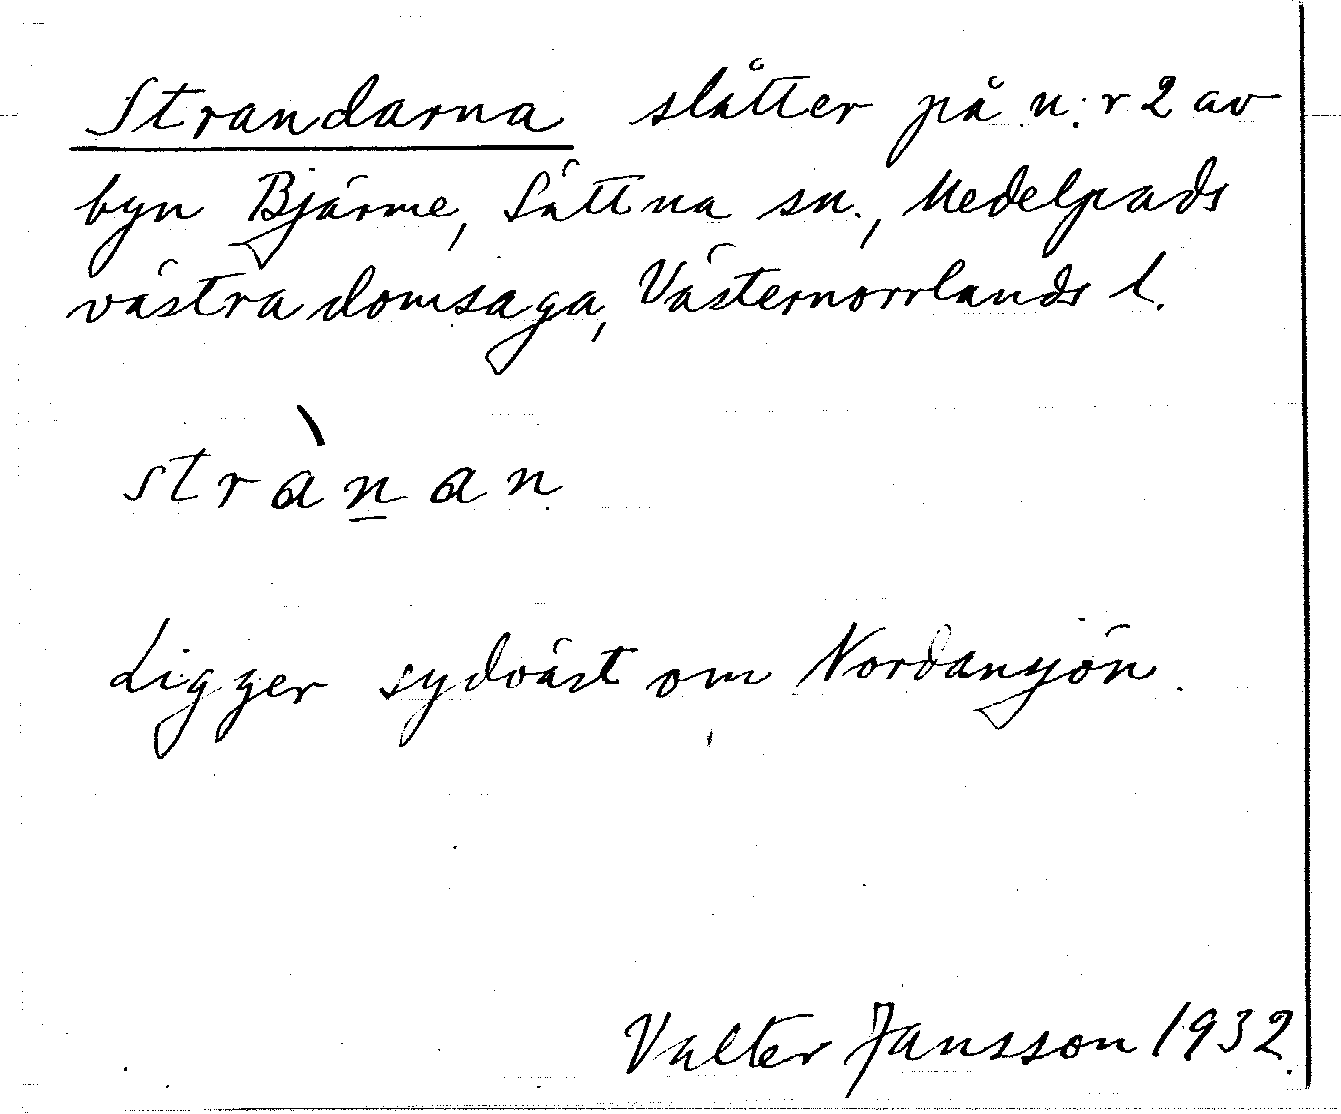 Strandarna slåtter på n:r 2 av
byn Bjärme, Sättna sn., Medelpads
västra domsaga, Västernorrlands l.
stràn̲an
Ligger sydväst om Nordansjön.
Valter Jansson 1932.